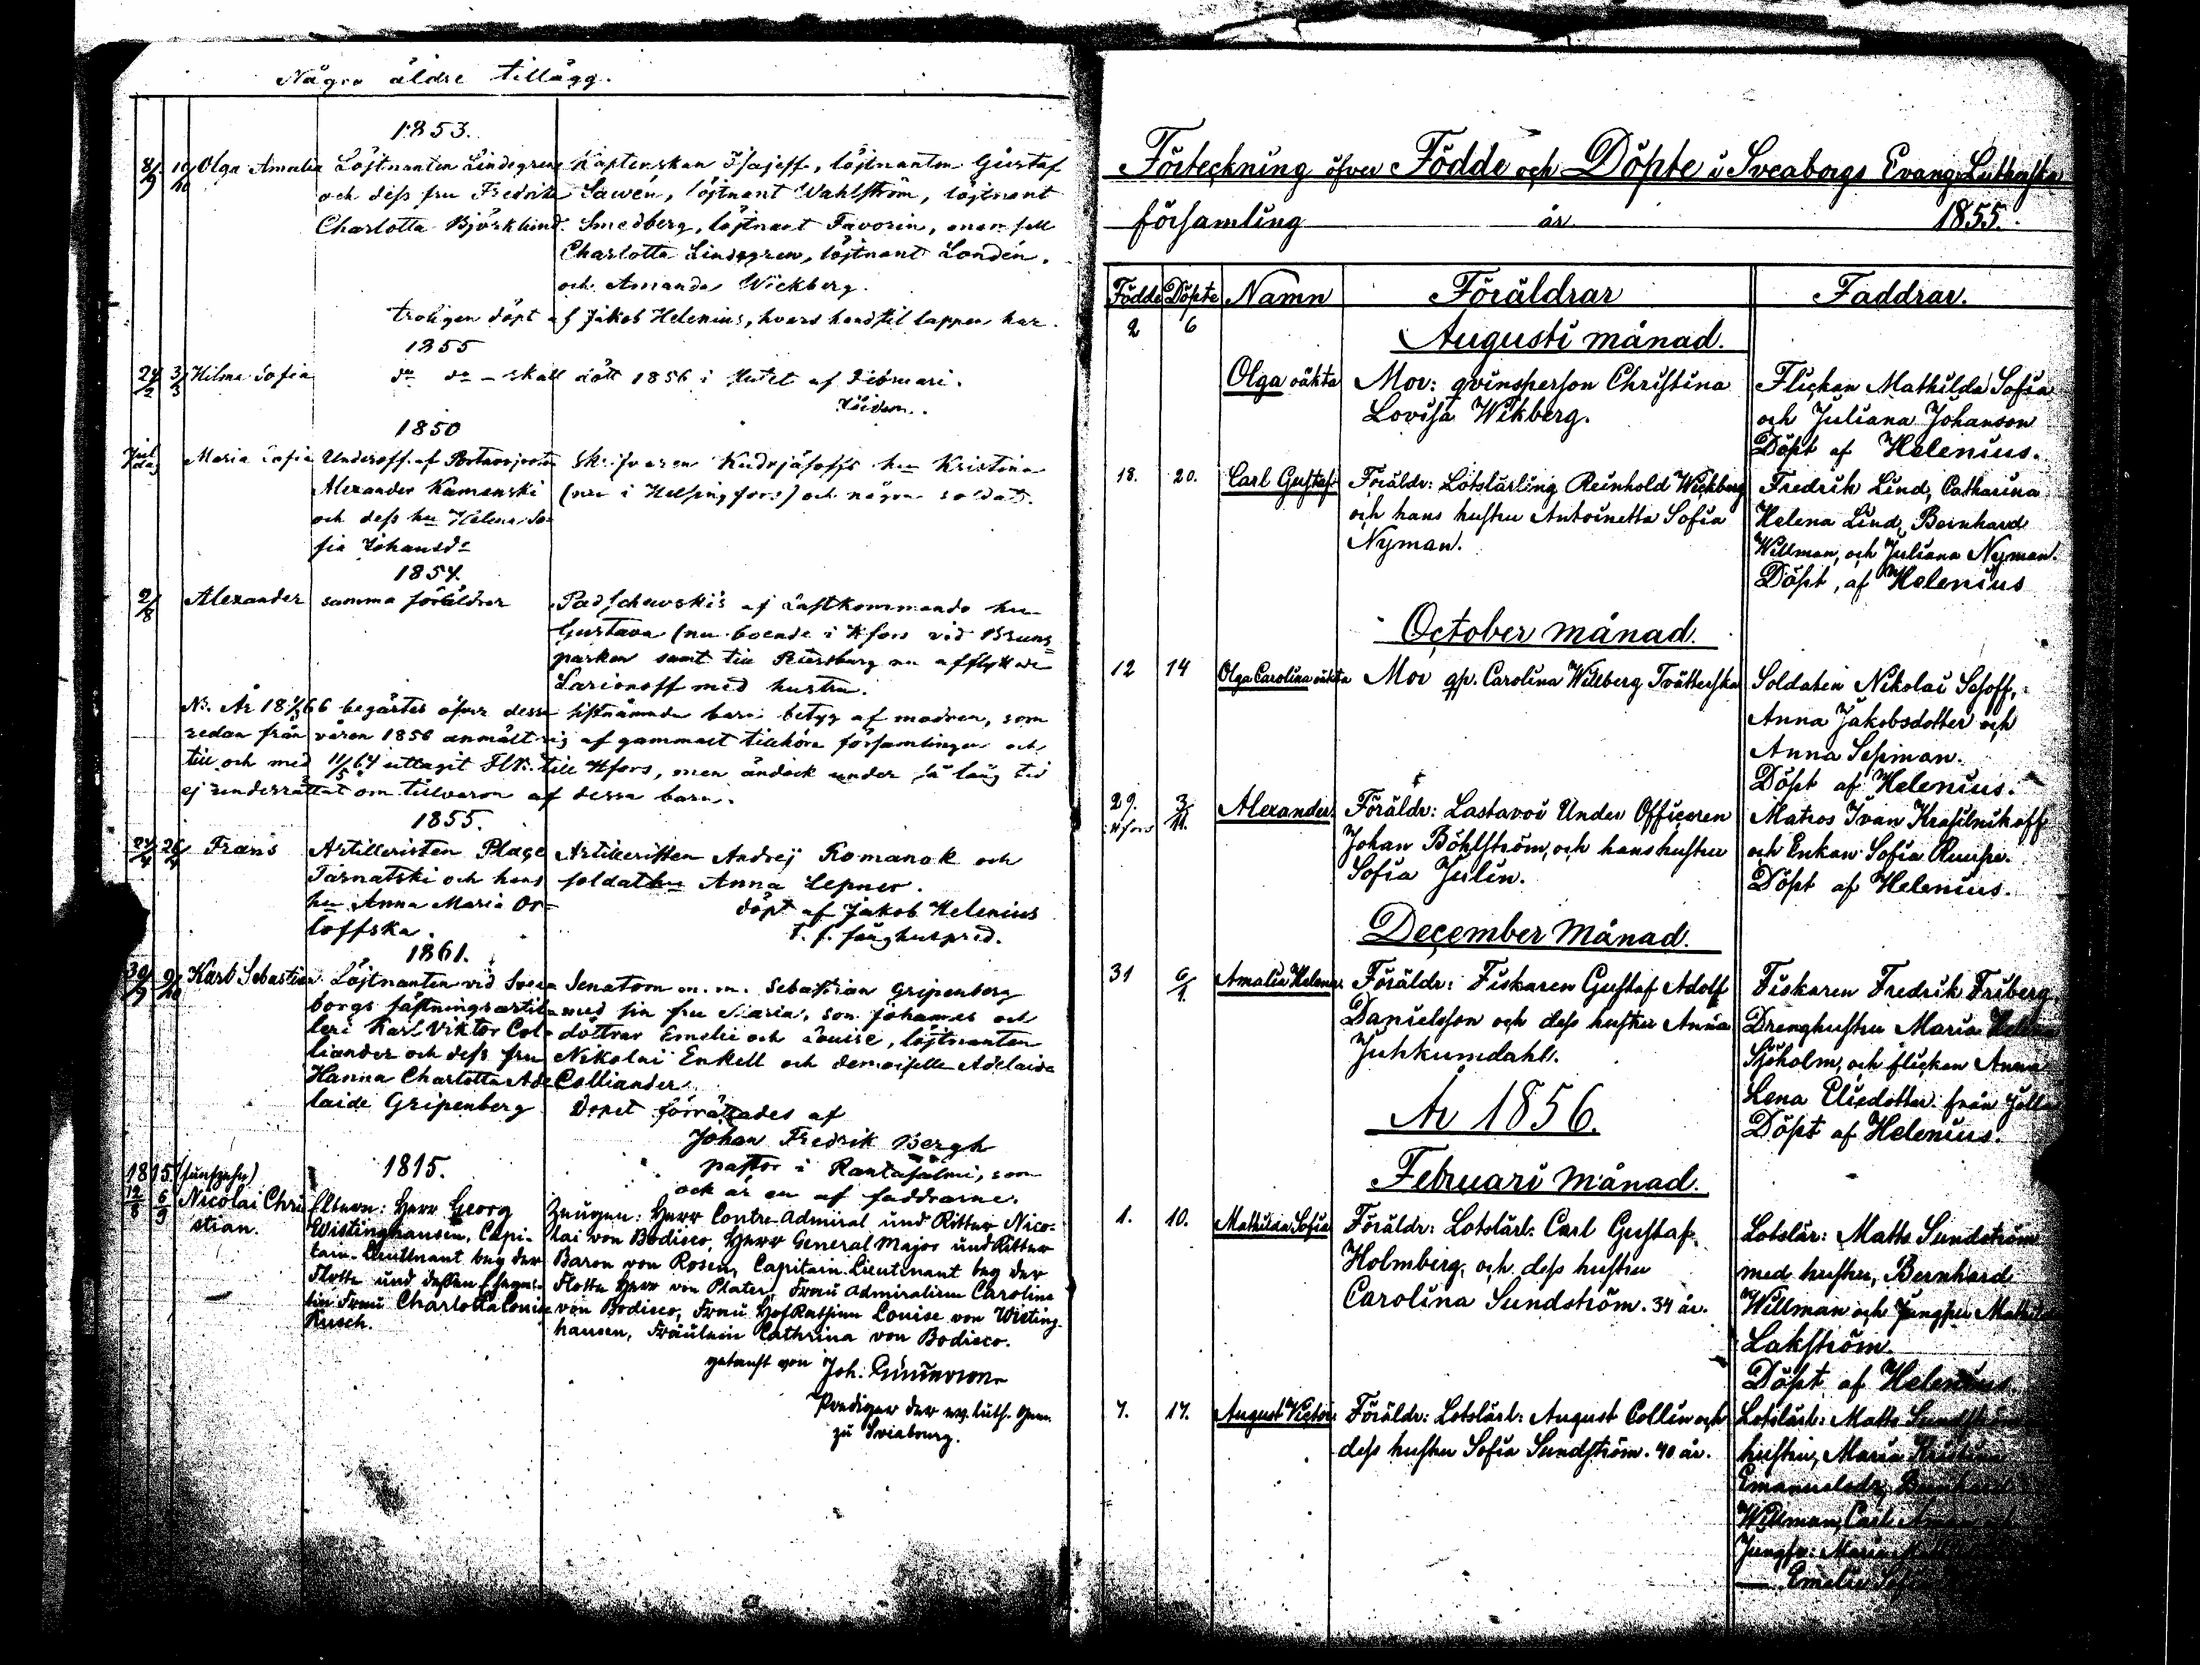 Några äldre tillägg.
1853.
8/9 10/10 Olga Amalia Löjtnanten Lindegrens Kaptenskan Isajeff, löjtnanten Gustaf
och dess fru Fredrika Sawén, löjtnant Wahlström, löjtnant
Charlotta Björklund. Smedberg, löjtnant Favorin, mamsell
Charlotta Lindegren, löjtnant Londén,
och Amanda Wickberg.
troligen döpt af Jakob Helenius, hvars handstil lappen har.
1855
24/2 3/3 Hilma Sofia do do - skall dött 1856 i slutet af Februari.
1850
Juldag Maria Sofia Underoff. af
Alexander Kamenski (nu i Helsingfors) och några soldat.
och dess hu Helena So-
fia Johansdr
1854.
2/8 Alexander samma föräldrar
Gustava (nu boende i Hfors vid Bruns-
parken samt till Petersburg nu afflyttade
Larionoff med hustru.
begärtes öfver dessa sistnämnda barn betyg af modren, som
redan från våren 1856 anmält sig af gammalt tillhöra församlingen och
till och med 11/5 64 uttagit till Hfors, men ändock under så lång tid
ej underrättat om tillvaron af dessa barn.
1855.
24/4 26/4 Frans Artilleristen Artilleristen Andrej Romanok och
Tarnatski och hans soldathu Anna Lepner.
hu Anna Maria Or- döpt af Jakob Helenius
loffska. t. f. fånghuspred.
1861.
30/9 9/10 Karl Sebastian Löjtnanten vid Svea- Senatorn m. m. Sebastian Gripenberg
borgs fästningsartil- med sin fru Maria, son Johannes och
leri Karl Viktor Col- döttrar Emelie och Louise, löjtnanten
liander och dess fru Nikolai Enkell och demoiselle Adelaide
Hanna Charlotta Ade- Colliander.
laide Gripenberg Dopet förrättades af
Johan Fredrik Bergh
pastor i Rantasalmi, som
ock är en af faddrarne.
1815 (fünfzehn) 1815.
12/8 6/9 Nicolai Chri- Eltern: Herr Georg Zeugen: Herr Contre-Admiral und Ritter Nico-
stian. Wistinghausen, Capi- lai von Bodisco, Herr General Major und Ritter
tain-Lieutenant bey der Baron von Rosen, Capitain-Lieutenant bey der
Flotte und dessen Ehegat- Flotte Herr von Plater, Frau Admiralin Carolina
tin Frau Charlotta Louise von Bodisco, Frau Hofräthin Louise von Wisting
Rusch. hausen, Fräulein Cathrina von Bodisco.
getauft von Joh.
Prediger der ev. luth. Gem.
zu Sveaborg.
Förteckning öfver Födde och Döpte i Sveaborgs Evang. Lutherska
församling år 1855.
Födde Döpte Namn Föräldrar Faddrar.
2 6 Augusti månad.
Olga oäkta Mor: qvinsperson Christina Flickan Mathilda Sofia
Lovisa Wikberg. och Juliana Johanson
Döpt af Helenius.
18. 20. Carl Gustaf Föräldr: Lotslärling Reinhold Wickberg Fredrik Lind, Catharina
och hans hustru Antoinetta Sofia Helena Lind, Bernhard
Nyman. Willman, och Juliana Nyman.
Döpt, af Helenius
October månad.
12 14 Olga Carolina oäkta Mor qp. Carolina Willberg Tvätterska Soldaten Nikolai Sasoff,
Anna Jakobsdotter och
Anna Sepman.
Döpt af Helenius.
29. 3/11. Alexander. Föräldr: Lastavoi Under Officeren Matros Ivan Krasilnikoff
i Hfors Johan Böhlström, och hans hustru och Enkan Sofia
Sofia Julin. Döpt af Helenius.
December månad.
31 6/1. Amalia Helena. Föräldr: Fiskaren Gustaf Adolf Fiskaren Fredrik Friberg,
Danielsson och dess hustru Anna Drenghustru Maria Helena
Juhkumdahl. Sjöholm, och flickan Anna
Lena Eliedotter från
Döpt af Helenius.
År 1856.
Februari månad.
1. 10. Mathilda Sofia Föräldr: Lotslärl: Carl Gustaf Lotslär: Matts Sundström
Holmberg, och dess hustru med hustru, Bernhard
Carolina Sundström. 34 år. Willman och Jungfru
Lakström.
Döpt af Helenius.
7. 17. August Victor. Föräldr: Lotslärl: August Collin och Lotslärl: Matts Sundström
dess hustru Sofia Sundström. 40 år. hustru, Maria Kristina
Emanuelsdr, Bernhard
Willman, Carl
Jungfr: Maria
Emelie Sofia